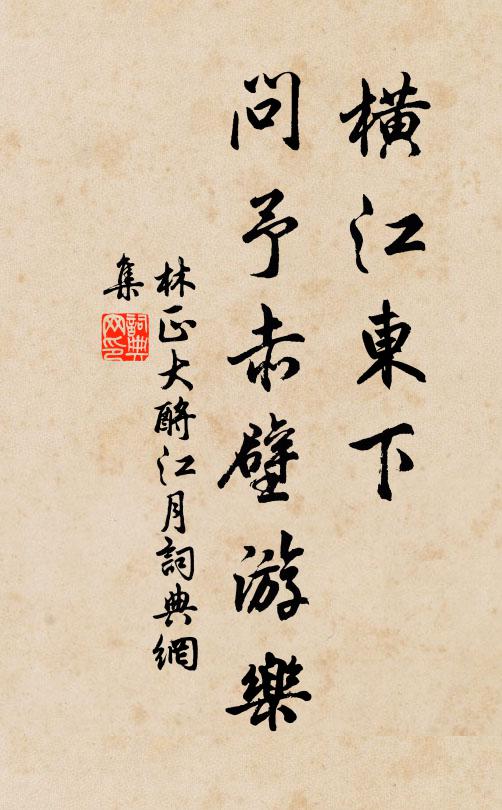 橫江東下
問予赤壁游樂
林正大酹江月詞典網
集
詞典
网印